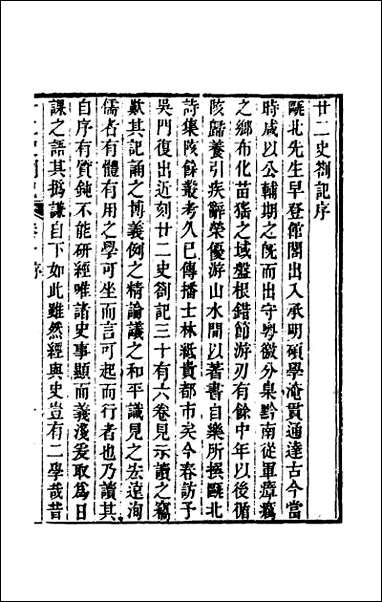 廿二史劄記序
甌北先生早登館閣出入承明碩學淹貫通達古今當
時咸以公輔期之旣而出守粤徼分臬黔南從軍瘴癘
之鄉布化苗猺之域盤根錯節游刃有餘中年以後循
陔歸養引疾辭榮優游山水間以著書自樂所撰甌北
詩集陔餘叢考久已傳播士林紙貴都市矣今春訪予
吳門復出近刻廿二史劄記三十有六卷見示讀之竊
歎其記誦之博義例之精論議之和平識見之宏遠洵
儒者有體有用之學可坐而言可起而行者也乃讀其
自序有質鈍不能研經唯諸史事顯而義淺爰取爲日
課之語其撝謙自下如此雖然經與史豈有二學哉昔